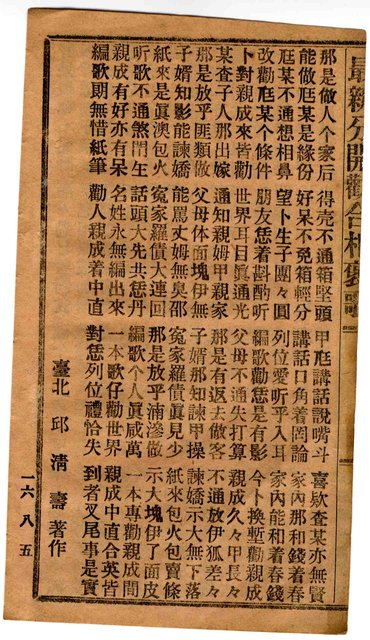 最新分開勸合相褒歌
那是做人个家后 得売不通箱堅頭 甲尫講話說嘴斗 喜欵查某亦無賢
能做尫某是緣份 好呆不免箱輕分 講話口角着罔論 家內那和錢着春
尫某不通想相鼻 望卜生子團々圓 列位愛听乎入耳 家內能和着春錢
改勸尫某个條件 朋友恁着斟酌听 編歌勸恁是有影 今卜換塹勸親成
卜對親成來皆勸 世界耳目眞通光 父母不通失打算 親成久々甲長々
某查子人那出嫁 通知親姆甲親家 那是有返去做客 不通放伊狐差々
那是放乎匪類做 父母体面塊伊無 子婿那知諫甲操 諫嬌示大無下落
子婿知影能諫嬌 能罵丈姆無臭邵 冤家羅債眞見少 紙來包火包賣條
紙來是眞澳包火 冤家羅債大連回 那是放乎滿滲做 示大塊伊了面皮
听歌不通煞門生 話頭大先共恁丹 編歌个人眞咸萬 一本專勸親成間
親成有好亦有呆 名姓永無編出來 一本歌仔勸世界 親成中直合英皆
編歌朗無惜紙筆 勸人親成着中直 對恁列位禮恰失 到者叉尾事是實
臺北 邱清壽著作
一六八五